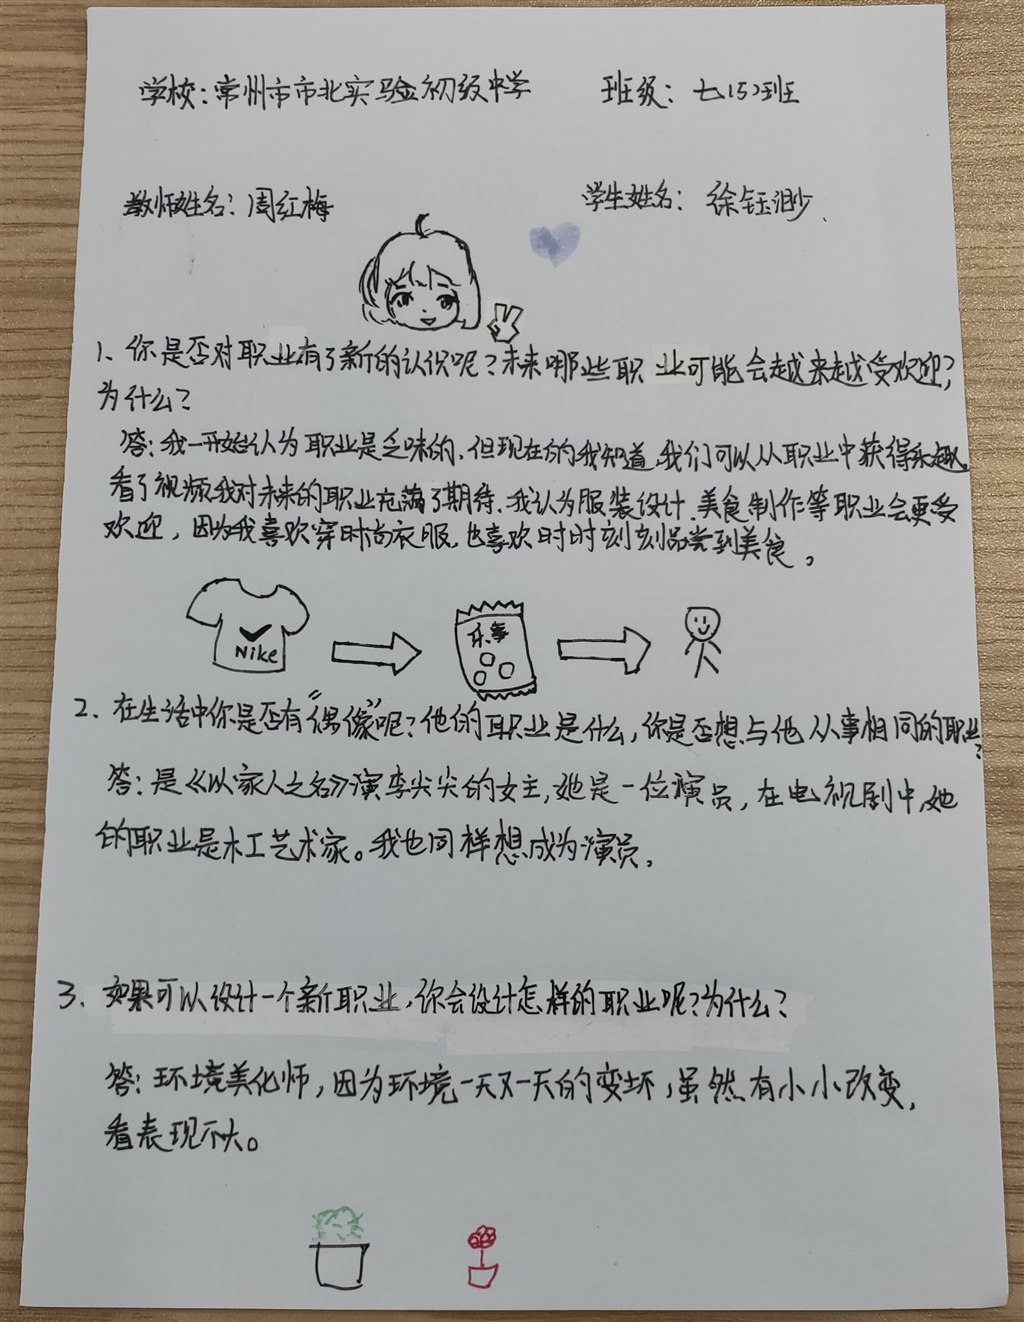 学校：常州市市北实验初级中学 班级：七(5)班
教师姓名：周红梅 学生姓名：徐钰渺
1、你是否对职业有了新的认识呢？未来哪些职业可能会越来越受欢迎？
为什么？
答：我一开始认为职业是乏味的，但现在的我知道，我们可以从职业中获得乐趣
看了视频我对未来的职业充满了期待，我认为服装设计、美食制作等职业会更受
欢迎，因为我喜欢穿时尚衣服，也喜欢时时刻刻品尝到美食。
Nike
乐事
2、在生活中你是否有“偶像”呢？他的职业是什么，你是否想与他从事相同的职业？
答：是《以家人之名》演李尖尖的女主，她是一位演员，在电视剧中，她
的职业是木工艺术家。我也同样想成为演员。
3、如果可以设计一个新职业，你会设计怎样的职业呢？为什么？
答：环境美化师，因为环境一天又一天的变坏，虽然有小小改变，
看表现不大。